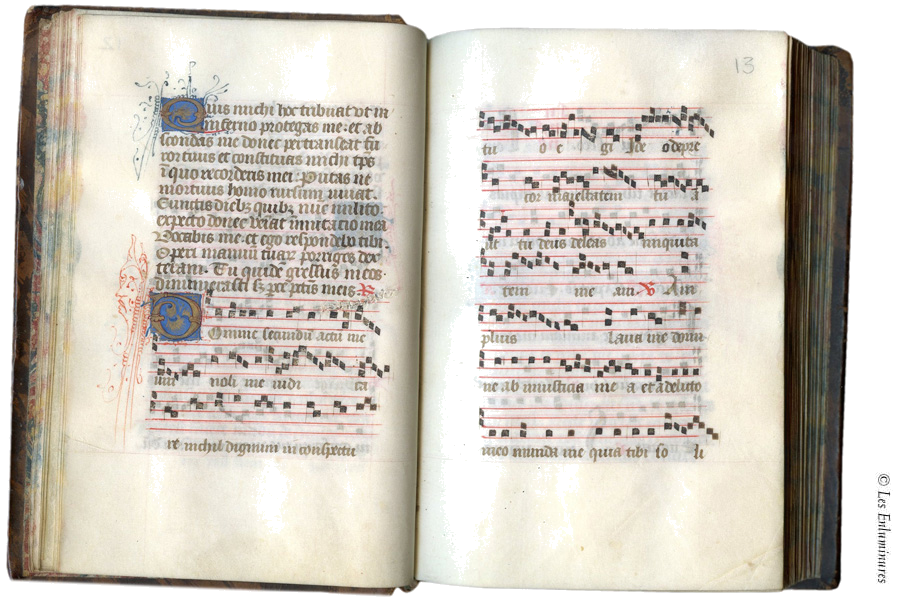 Quis michi hoc tribuat vt in
inferno protegas me. et ab
scondas me donec pertranseat fu
ror tuus et constituas michi tp̄s
ī quo recorderis mei: Putas ne
mortuus homo rursum viuat.
Cunctis dieb; quib; nūc milito.
expecto donec veīat īmutatio mea
Vocabis me. et ego respondebo tibi.
Operi manuū tuar porriges dex
teram. Tu quidē gressus meos
dinumerasti s; pce pctīs meis R
Domine secundū actū me
um noli me iudi ca
re nichil dignum in conspectu
13
tu o e gi Ide o depre
cor maiestatem tu a
ut tu deus deleas iniquita
tem me am V Am
plius laua me domi
ne ab iniusticia me a et a delicto
meo munda me quia tibi so li
© Les Enluminures